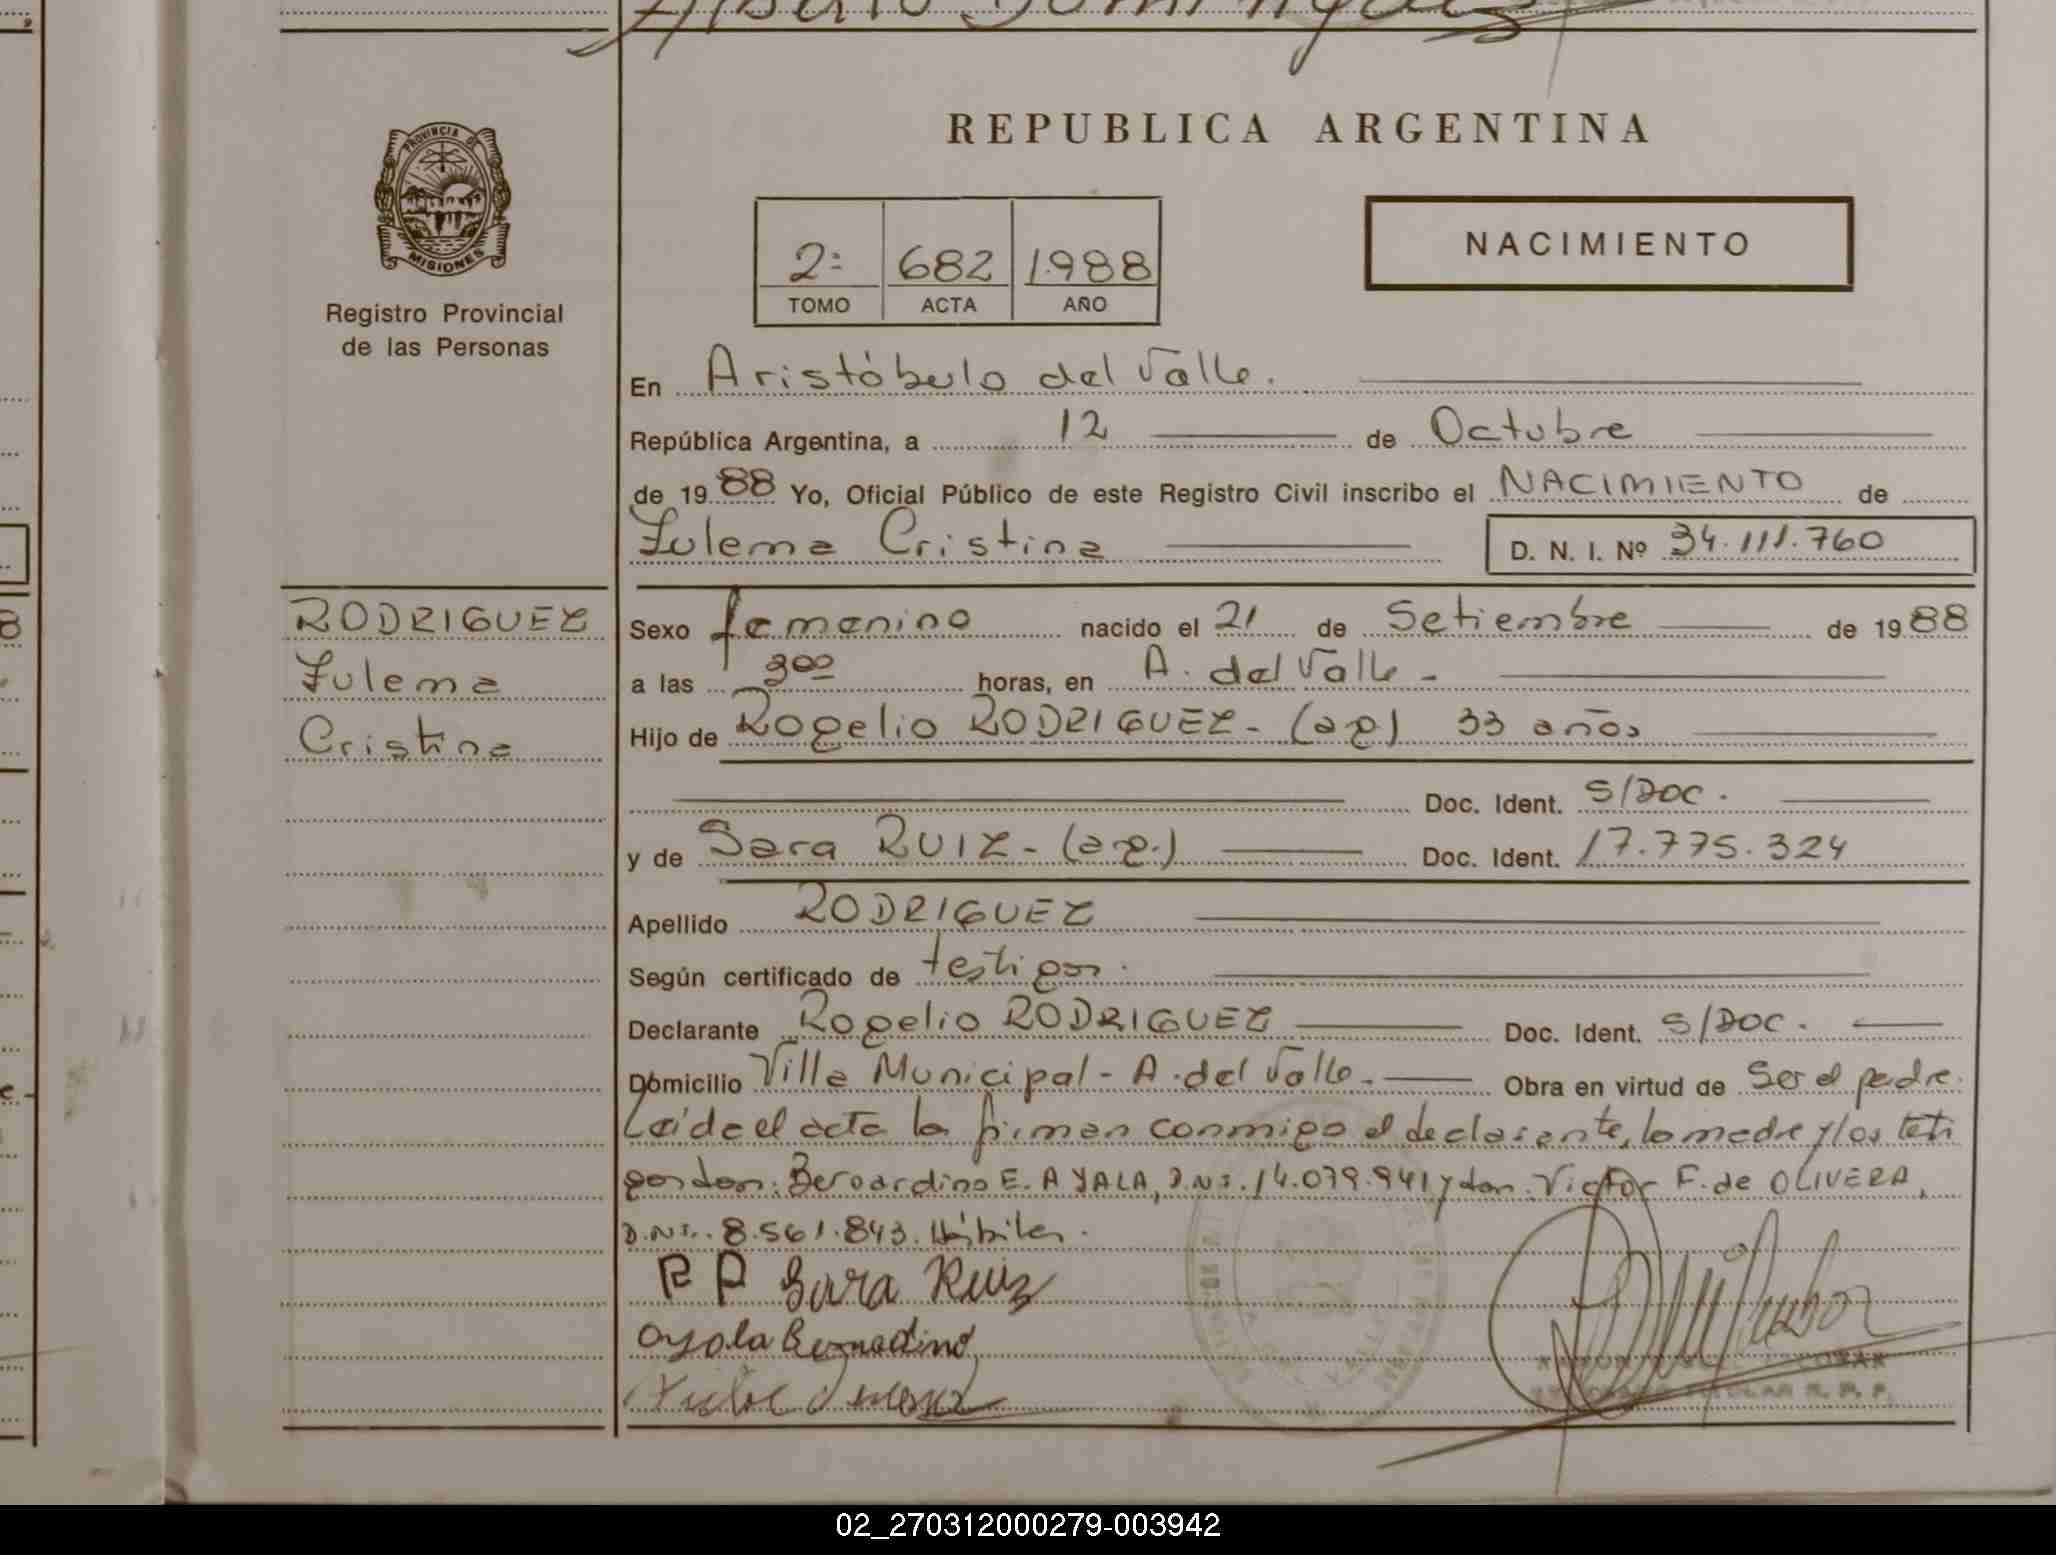 REPUBLICA ARGENTINA
PROVINCIA DE
MISIONES
Registro Provincial
de las Personas
2º 682 1.988
TOMO ACTA AÑO
NACIMIENTO
En Aristóbulo del Valle.
República Argentina, a 12 de Octubre
de 1988 Yo, Oficial Público de este Registro Civil inscribo el NACIMIENTO de
Zulema Cristina D. N. I. Nº 34.111.760
RODRIGUEZ
Zulema
Cristina
Sexo femenino nacido el 21 de Setiembre de 1988
a las 300 horas, en A. del Valle -
Hijo de Rogelio RODRIGUEZ - (ag) 33 años
Doc. Ident. S/DOC.
y de Sara RUIZ - (ag.) Doc. Ident. 17.775.324
Apellido RODRIGUEZ
Según certificado de testigos.
Declarante Rogelio RODRIGUEZ Doc. Ident. S/DOC.
Domicilio Villa Municipal - A. del Valle - Obra en virtud de Ser el padre.
Leída el acta la firman conmigo el declarante, la madre y los testi
gos don: Bernardino E. AYALA, D.N.I. 14.079.941 y don. Victor F. de OLIVERA,
D.N.I. 8.561.843. Hábiles.
R R Sara Ruiz
Ayala Bernadino
02_270312000279-003942